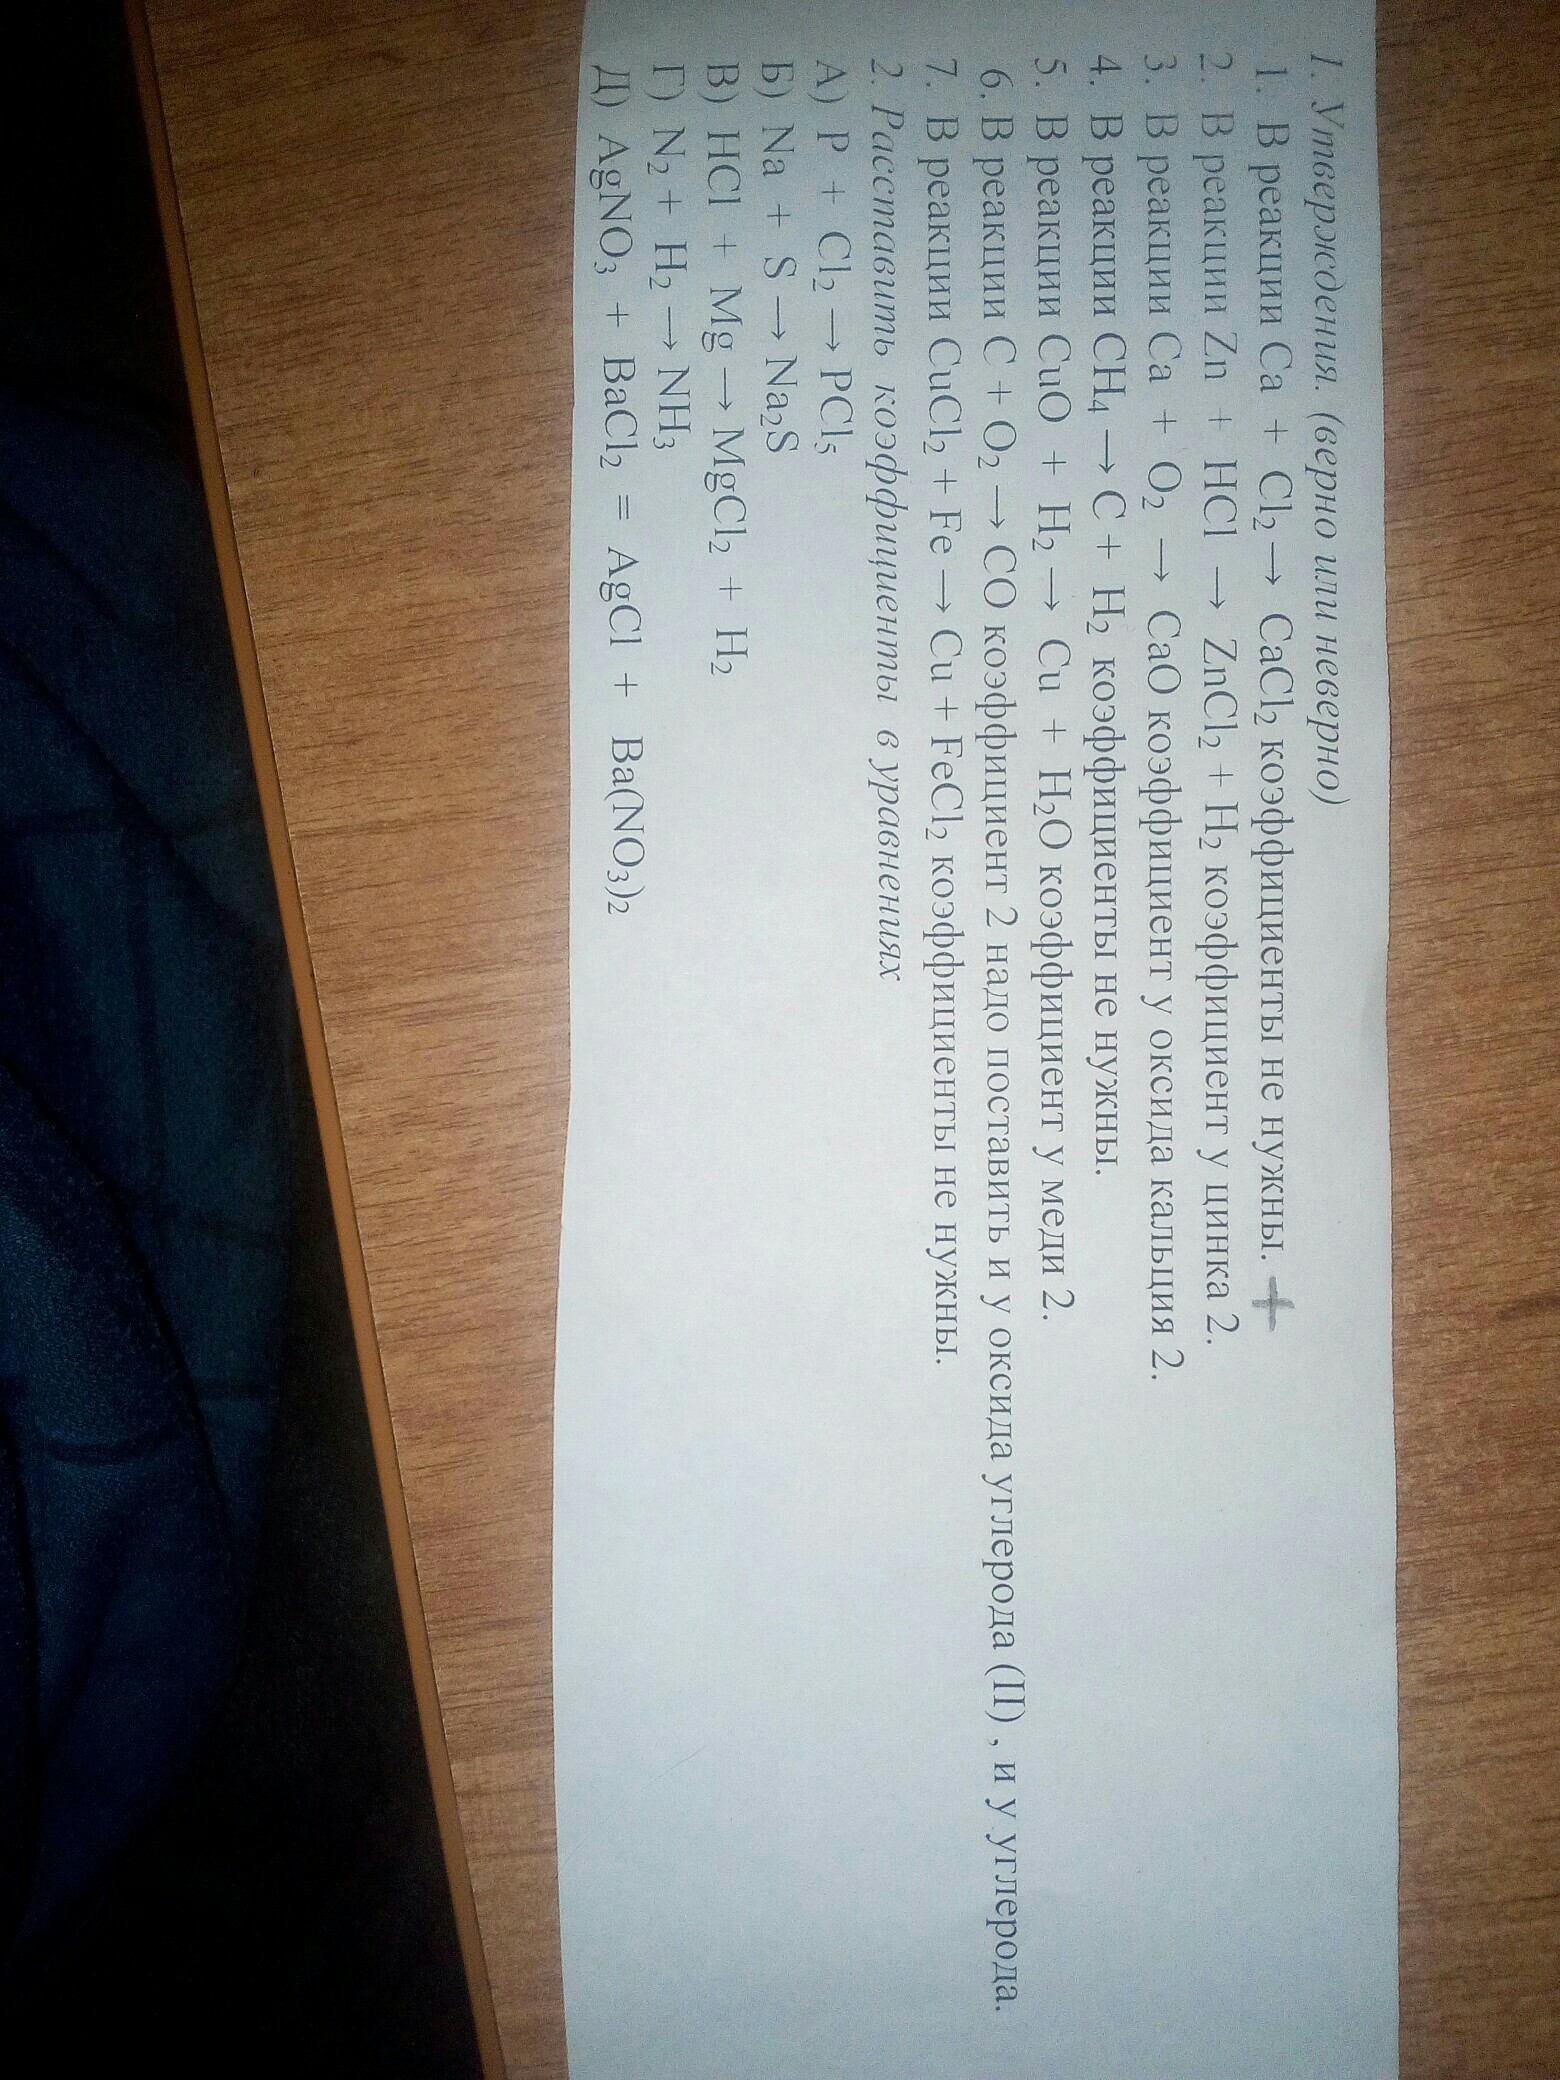 1. Утверждения. (верно или неверно)
1. В реакции Ca + Cl₂ → CaCl₂ коэффициенты не нужны. +
2. В реакции Zn + HCl → ZnCl₂ + H₂ коэффициент у цинка 2.
3. В реакции Ca + O₂ → CaO коэффициент у оксида кальция 2.
4. В реакции CH₄ → C + H₂ коэффициенты не нужны.
5. В реакции CuO + H₂ → Cu + H₂O коэффициент у меди 2.
6. В реакции C + O₂ → CO коэффициент 2 надо поставить и у оксида углерода (II) , и у углерода.
7. В реакции CuCl₂ + Fe → Cu + FeCl₂ коэффициенты не нужны.
2. Расставить коэффициенты в уравнениях
А) P + Cl₂ → PCl₅
Б) Na + S → Na₂S
В) HCl + Mg → MgCl₂ + H₂
Г) N₂ + H₂ → NH₃
Д) AgNO₃ + BaCl₂ = AgCl + Ba(NO₃)₂